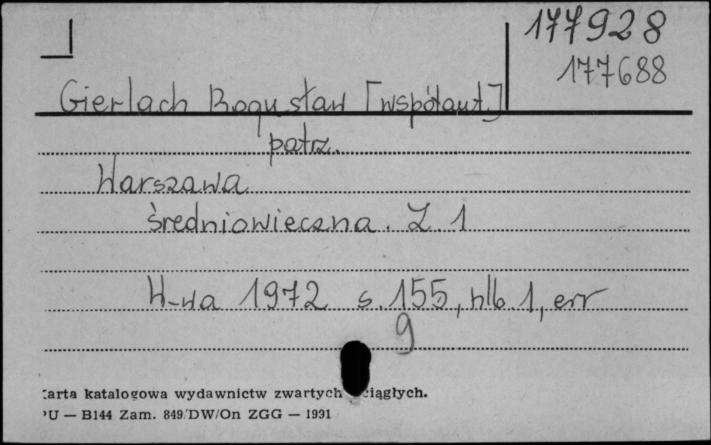 177928
177688
Gierlach Bogusław [współaut.]
patrz.
Warszawa
średniowieczna. Z. 1
W-wa 1972 s. 155, nlb. 1, err
9
arta katalogowa wydawnictw zwartych ciągłych.
U — B144 Zam. 849/DW/On ZGG — 1991